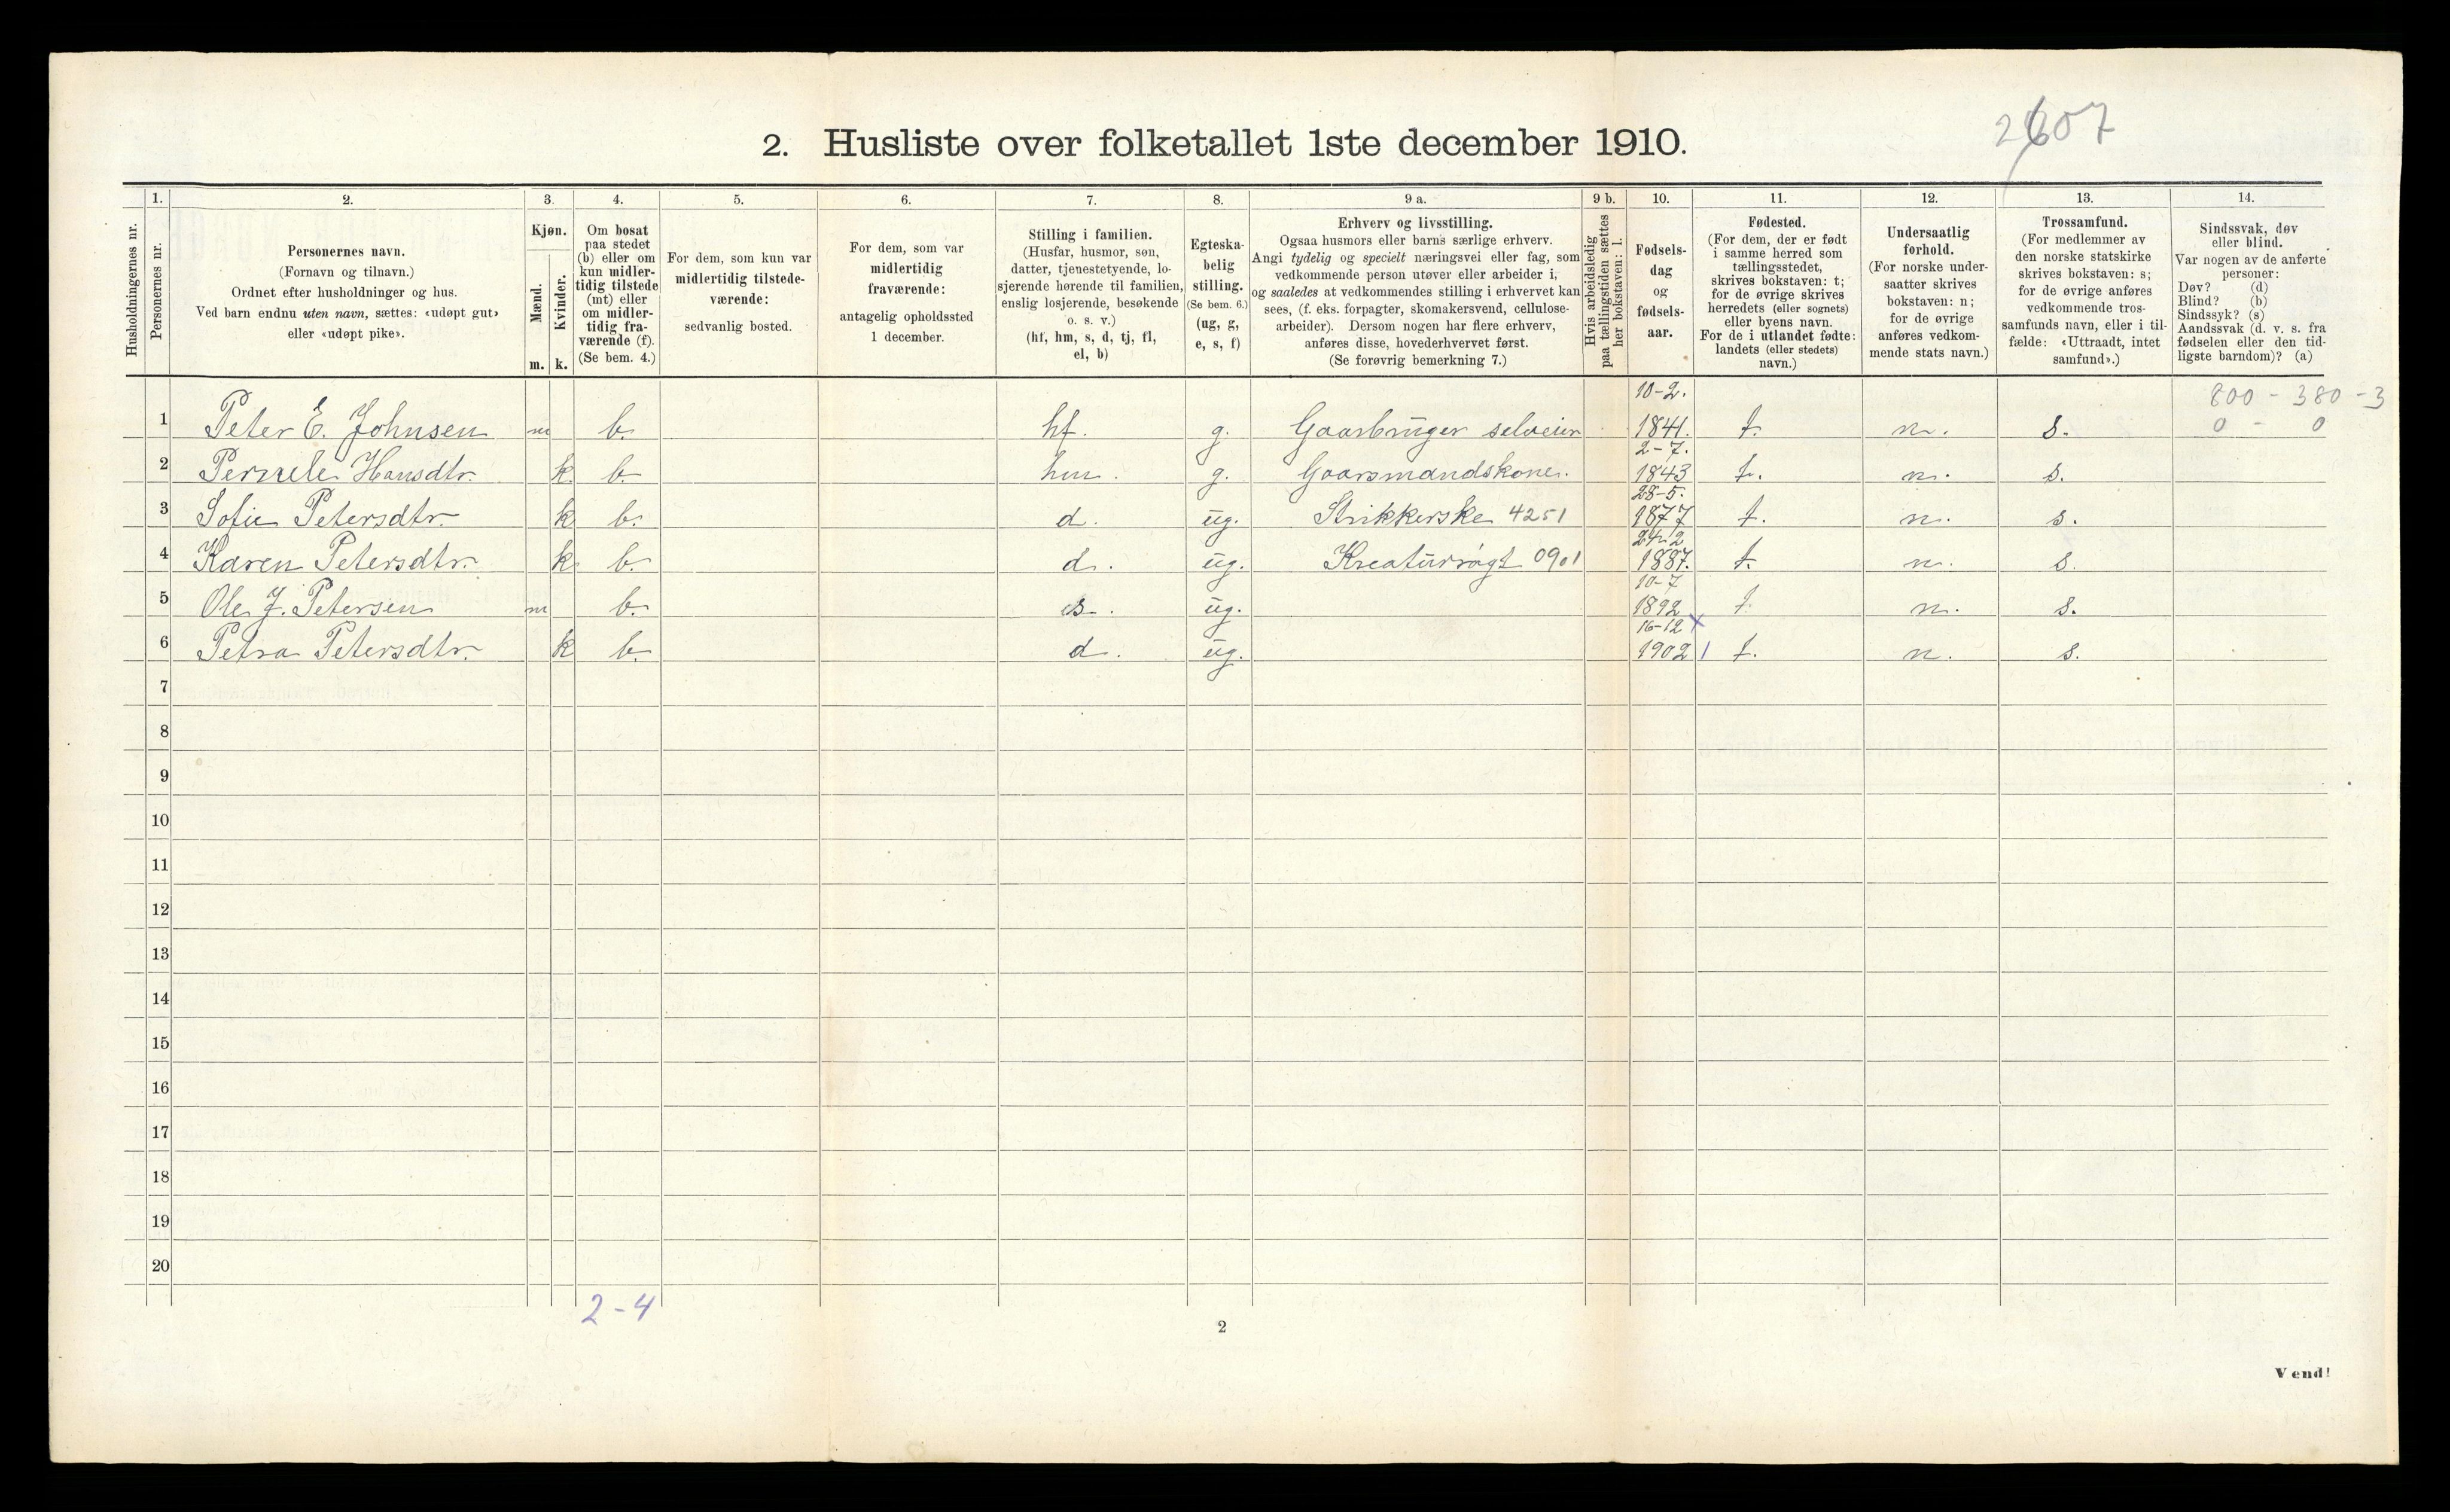 2607
2. Husliste over folketallet 1ste december 1910.
Husholdningernes nr.
1.
Personernes nr.
2.
Personernes navn.
(Fornavn og tilnavn.)
Ordnet efter husholdninger og hus.
Ved barn endnu uten navn, sættes: «udøpt gut»
eller «udøpt pike».
3.
Kjøn.
Mænd.
Kvinder.
m. k.
4.
Om bosat
paa stedet
(b) eller om
kun midler-
tidig tilstede
(mt) eller
om midler-
tidig fra-
værende (f).
(Se bem. 4.)
5.
For dem, som kun var
midlertidig tilstede-
værende:
sedvanlig bosted.
6.
For dem, som var
midlertidig
fraværende:
antagelig opholdssted
1 december.
7.
Stilling i familien.
(Husfar, husmor, søn,
datter, tjenestetyende, lo-
sjerende hørende til familien,
enslig losjerende, besøkende
o. s. v.)
(hf, hm, s, d, tj, fl,
el, b)
8.
Egteska-
belig
stilling.
(Se bem. 6.)
(ug, g,
e, s, f)
9 a.
Erhverv og livsstilling.
Ogsaa husmors eller barns særlige erhverv.
Angi tydelig og specielt næringsvei eller fag, som
vedkommende person utøver eller arbeider i,
og saaledes at vedkommendes stilling i erhvervet kan
sees, (f. eks. forpagter, skomakersvend, cellulose-
arbeider). Dersom nogen har flere erhverv,
anføres disse, hovederhvervet først.
(Se forøvrig bemerkning 7.)
9 b.
Hvis arbeidsledig
paa tællingstiden sættes
her bokstaven: l.
10.
Fødsels-
dag
og
fødsels-
aar.
11.
Fødested.
(For dem, der er født
i samme herred som
tællingsstedet,
skrives bokstaven: t;
for de øvrige skrives
herredets (eller sognets)
eller byens navn.
For de i utlandet fødte:
landets (eller stedets)
navn.)
12.
Undersaatlig
forhold.
(For norske under-
saatter skrives
bokstaven: n;
for de øvrige
anføres vedkom-
mende stats navn.)
13.
Trossamfund.
(For medlemmer av
den norske statskirke
skrives bokstaven: s;
for de øvrige anføres
vedkommende tros-
samfunds navn, eller i til-
fælde: «Uttraadt, intet
samfund».)
14.
Sindssvak, døv
eller blind.
Var nogen av de anførte
personer:
Døv? (d)
Blind? (b)
Sindssyk? (s)
Aandssvak (d. v. s. fra
fødselen eller den tid-
ligste barndom)? (a)
10-2. 800 - 380 - 3
1 Peter E. Johnsen m b. hf. g. Gaarbruger selveier 1841. t. n. s. 0 - 0
2-7.
2 Pernele Hansdtr. k. b. hm. g. Gaarsmandskone. 1843 t. n. s.
28-5.
3 Sofie Petersdtr. k b. d. ug. Strikkerske 4251 1877 t. n. s.
24-2
4 Karen Petersdtr. k b. d. ug. Kreaturrøgt 0901 1887. t. n. s.
10-7
5 Ole J. Petersen m b. s. ug. 1892 t. n. s.
16-12 x
6 Petra Petersdtr. k b. d. ug. 1902 1 t. n. s.
7
8
9
10
11
12
13
14
15
16
17
18
19
20
2-4
2
Vend!